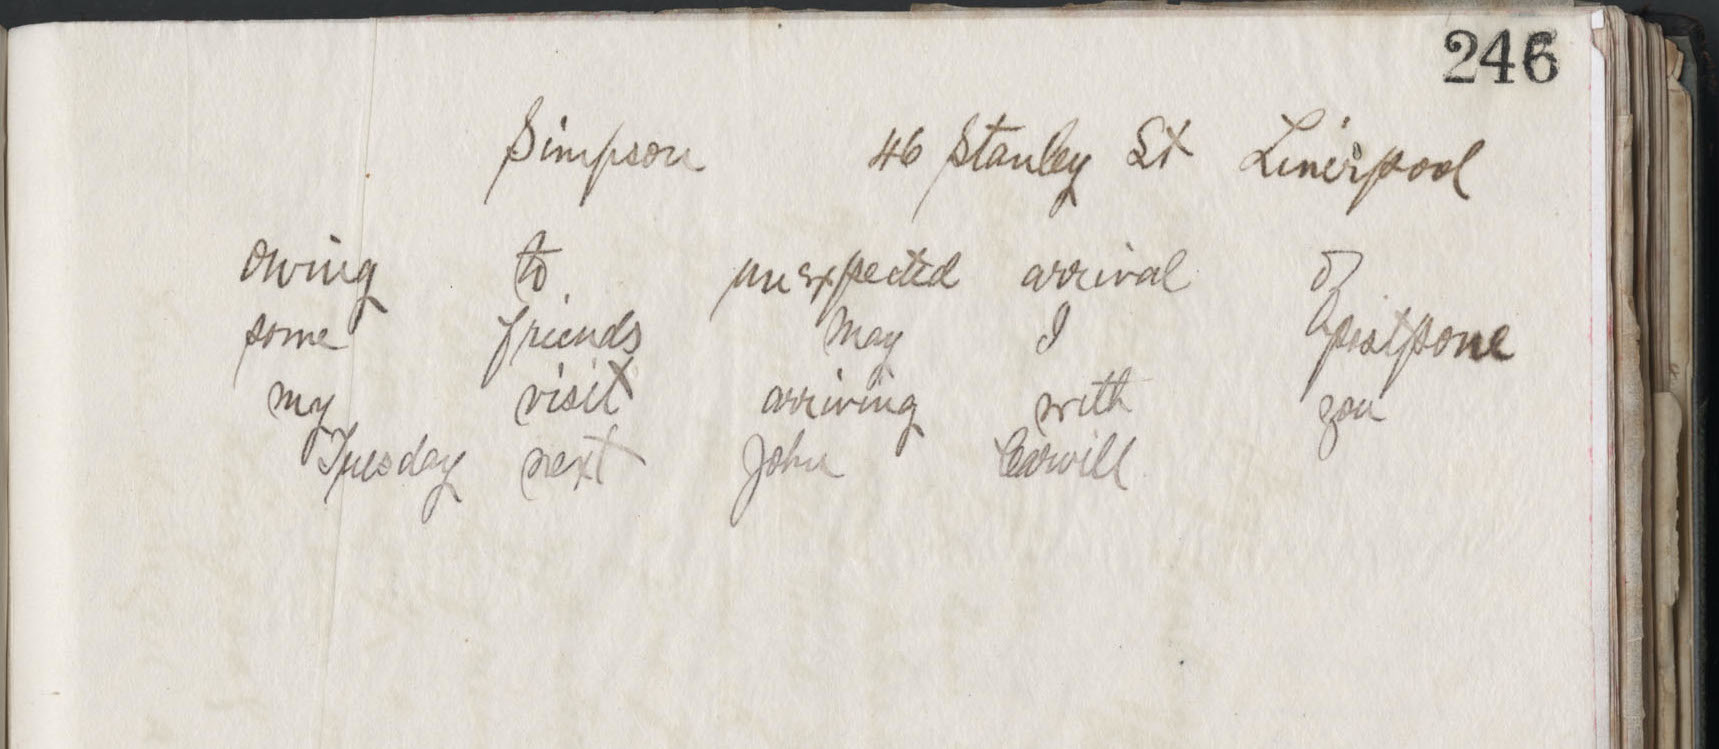 246
Simpson 46 Stanley St Liverpool
owing to unexpected arrival of
some friends may I postpone
my visit arriving with you
Tuesday next John Carvill